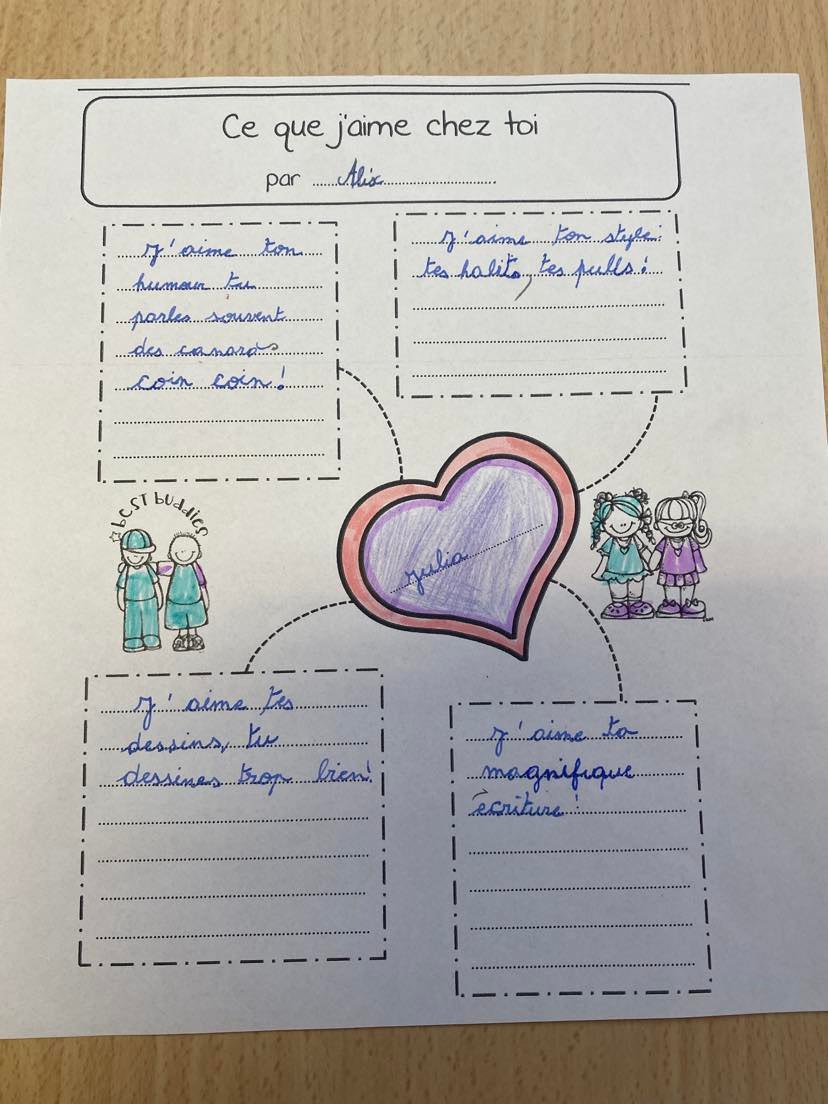 Ce que j'aime chez toi
par Alix
J'aime ton
humour tu
parles souvent
des canards
coin coin!
J'aime ton style:
tes habits, tes pulls!
BEST BUDDIES
Julia
J'aime tes
dessins, tu
dessines trop bien!
J'aime ta
magnifique
écriture!